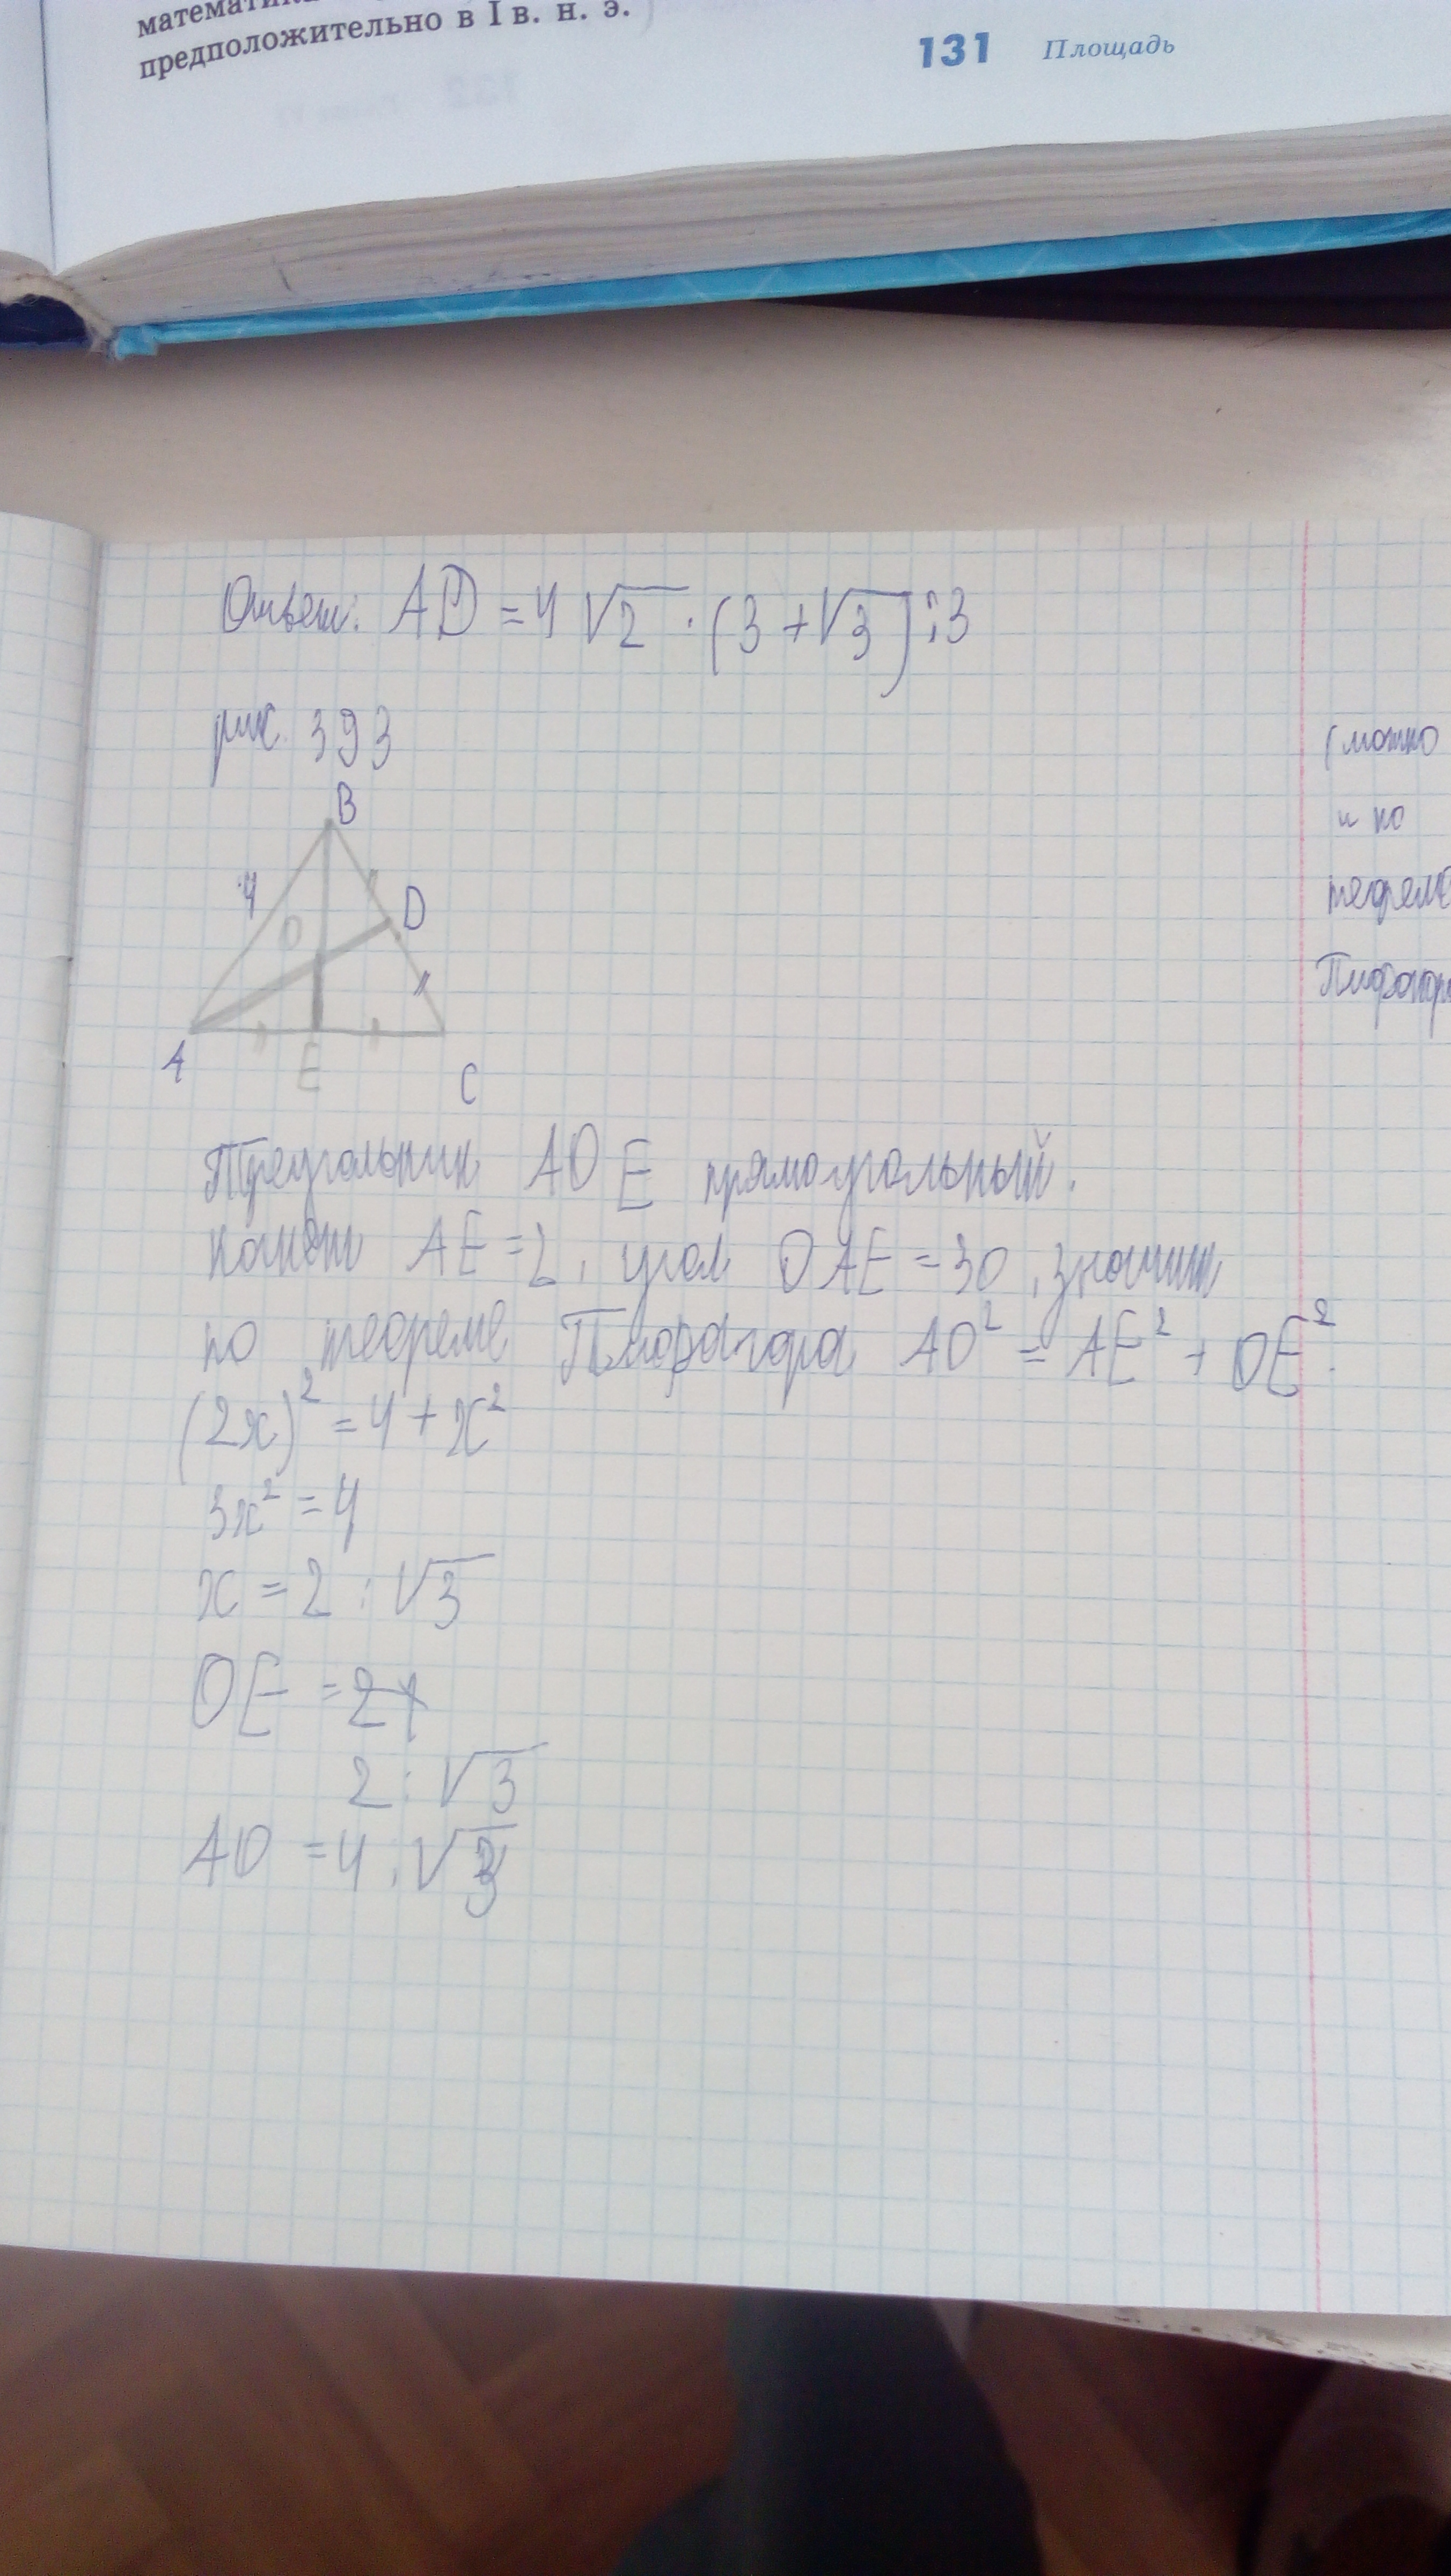 математик
предположительно в I в. н. э.
131 Площадь
Ответ: AD = 4√2 · (3+√3) : 3
рис. 393
B
4
D
O
A
E
C
(можно
и по
теореме
Пифагора
Треугольник AOE прямоугольный.
Катет AE = 2, угол OAE = 30, значит
по теореме Пифагора AO² = AE² + OE².
(2x)² = 4 + x²
3x² = 4
x = 2 : √3
OE =
2 : √3
AO = 4 : √3